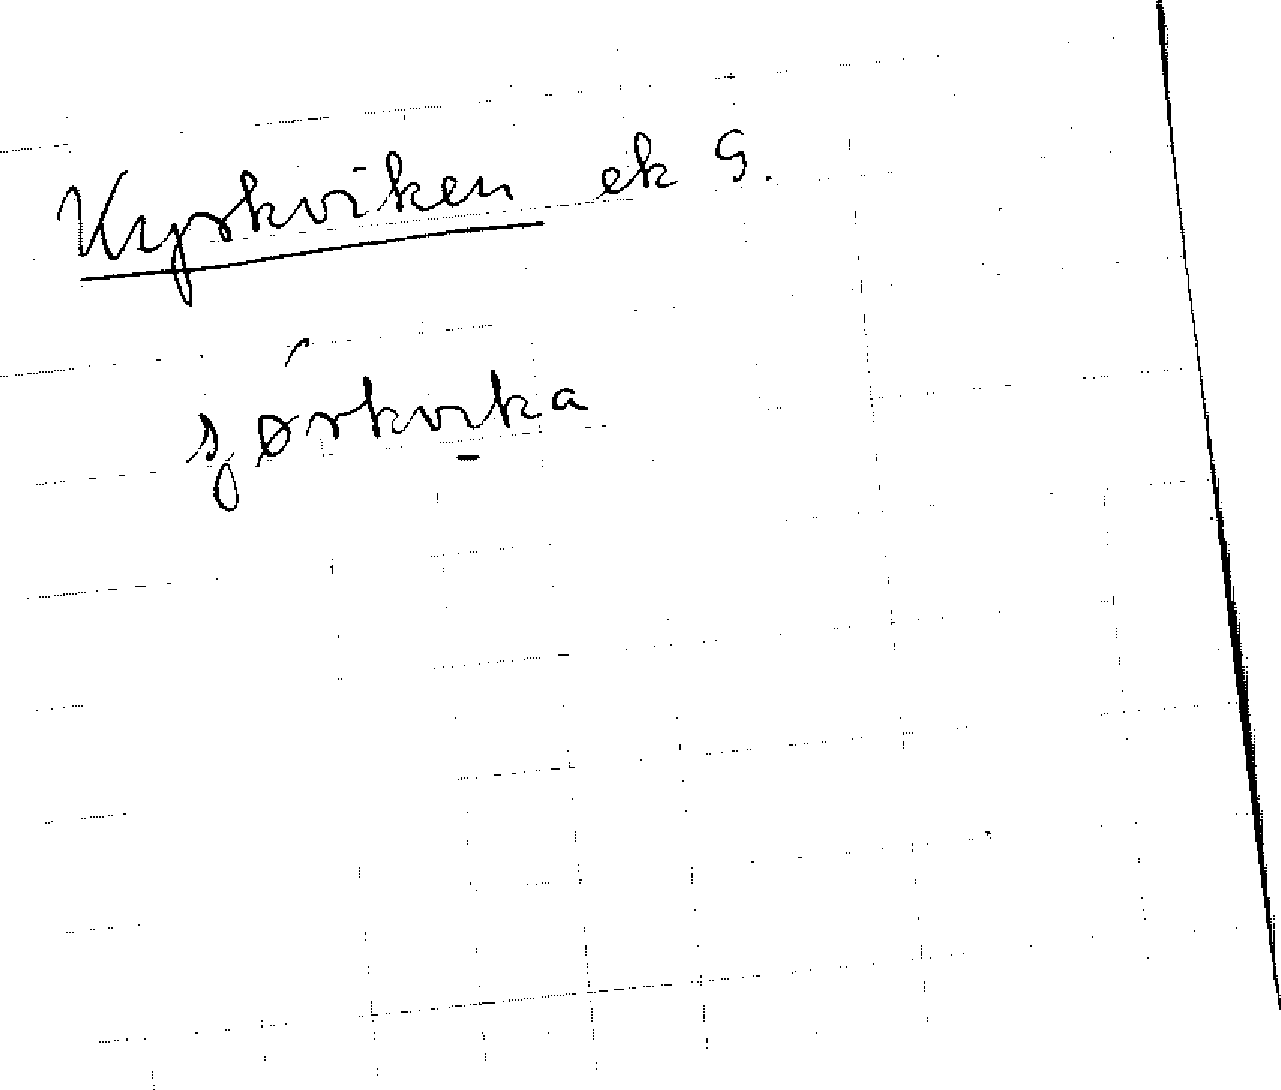 Kyrkviken ek G.
şørkvika